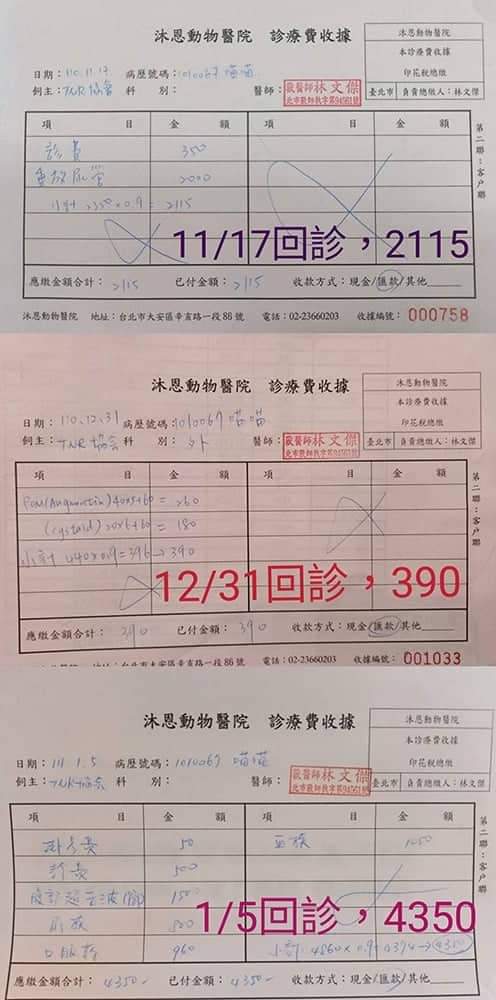 沐恩動物醫院 診療費收據
沐恩動物醫院
本診療費收據
印花稅總繳
臺北市 負責總繳人：林文傑
日期：110.11.17 病歷號碼：1010067 喵喵
飼主：TNR協會 科 別： 醫師：
獸醫師林文傑
項 目 金 額 項 目 金 額
診費 350
2000
小計 2350×0.9= 2115
11/17回診，2115
應繳金額合計：2115 已付金額：2115 收款方式：現金/匯款/其他
第二聯：客戶聯
沐恩動物醫院 地址：台北市大安區辛亥路一段88號 電話：02-23660203 收據編號：000758
沐恩動物醫院 診療費收據
沐恩動物醫院
本診療費收據
印花稅總繳
臺北市 負責總繳人：林文傑
日期：110.12.31 病歷號碼：1010067 喵喵
飼主：TNR協會 科 別：外 醫師：
獸醫師林文傑
項 目 金 額 項 目 金 額
= 260
= 180
小計 440×0.9=396→390
12/31回診，390
應繳金額合計：390 已付金額：390 收款方式：現金/匯款/其他
第二聯：客戶聯
地址：台北市大安區辛亥路一段86號 電話：02-23660203 收據編號：001033
沐恩動物醫院 診療費收據
沐恩動物醫院
本診療費收據
印花稅總繳
臺北市 負責總繳人：林文傑
日期：111.1.5 病歷號碼：1010067 喵喵
飼主：TNR協會 科 別： 醫師：
獸醫師林文傑
項 目 金 額 項 目 金 額
掛號費 50
診費 500
960
小計 4860×0.9
1/5回診，4350
應繳金額合計：4350- 已付金額：4350- 收款方式：現金/匯款/其他
第二聯：客戶聯